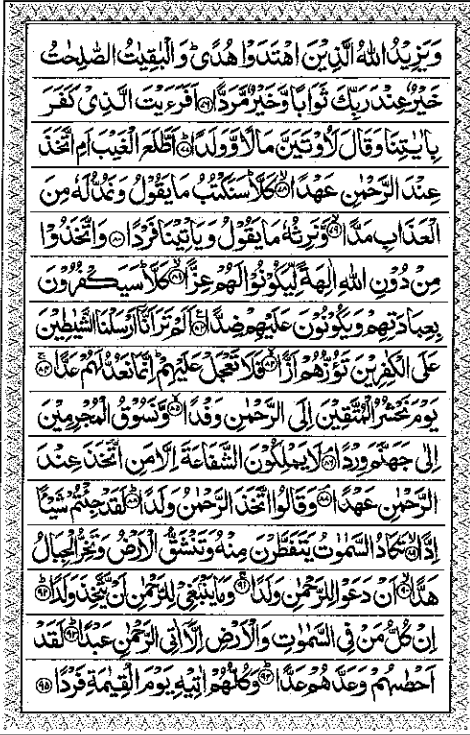 وَيَزِيۡدُ اللّٰهُ الَّذِيۡنَ اهۡتَدَوۡا هُدًىؕ وَالۡبٰقِيٰتُ الصّٰلِحٰتُ
خَيۡرٌ عِنۡدَ رَبِّكَ ثَوَابًا وَّخَيۡرٌ مَّرَدًّا ﴿۷۶﴾ اَفَرَءَيۡتَ الَّذِىۡ كَفَرَ
بِاٰيٰتِنَا وَقَالَ لَاُوۡتَيَنَّ مَالًا وَّوَلَدًاؕ ﴿۷۷﴾ اَطَّلَعَ الۡغَيۡبَ اَمِ اتَّخَذَ
عِنۡدَ الرَّحۡمٰنِ عَهۡدًاۙ ﴿۷۸﴾ كَلَّاؕ سَنَكۡتُبُ مَا يَقُوۡلُ وَنَمُدُّ لَهٗ مِنَ
الۡعَذَابِ مَدًّاۙ ﴿۷۹﴾ وَّنَرِثُهٗ مَا يَقُوۡلُ وَيَاۡتِيۡنَا فَرۡدًا ﴿۸۰﴾ وَاتَّخَذُوۡا
مِنۡ دُوۡنِ اللّٰهِ اٰلِهَةً لِّيَكُوۡنُوۡا لَهُمۡ عِزًّاۙ ﴿۸۱﴾ كَلَّاؕ سَيَكۡفُرُوۡنَ
بِعِبَادَتِهِمۡ وَيَكُوۡنُوۡنَ عَلَيۡهِمۡ ضِدًّا ﴿۸۲﴾ اَلَمۡ تَرَ اَنَّاۤ اَرۡسَلۡنَا الشَّيٰطِيۡنَ
عَلَى الۡكٰفِرِيۡنَ تَؤُزُّهُمۡ اَزًّاۙ ﴿۸۳﴾ فَلَا تَعۡجَلۡ عَلَيۡهِمۡؕ اِنَّمَا نَعُدُّ لَهُمۡ عَدًّاۚ ﴿۸۴﴾
يَوۡمَ نَحۡشُرُ الۡمُتَّقِيۡنَ اِلَى الرَّحۡمٰنِ وَفۡدًاۙ ﴿۸۵﴾ وَّنَسُوۡقُ الۡمُجۡرِمِيۡنَ
اِلٰى جَهَنَّمَ وِرۡدًاۘ ﴿۸۶﴾ لَا يَمۡلِكُوۡنَ الشَّفَاعَةَ اِلَّا مَنِ اتَّخَذَ عِنۡدَ
الرَّحۡمٰنِ عَهۡدًاۘ ﴿۸۷﴾ وَقَالُوا اتَّخَذَ الرَّحۡمٰنُ وَلَدًاؕ ﴿۸۸﴾ لَقَدۡ جِئۡتُمۡ شَيۡــًٔا
اِدًّاۙ ﴿۸۹﴾ تَكَادُ السَّمٰوٰتُ يَتَفَطَّرۡنَ مِنۡهُ وَتَنۡشَقُّ الۡاَرۡضُ وَتَخِرُّ الۡجِبَالُ
هَدًّاۙ ﴿۹۰﴾ اَنۡ دَعَوۡا لِلرَّحۡمٰنِ وَلَدًاۚ ﴿۹۱﴾ وَمَا يَنۡۢبَغِىۡ لِلرَّحۡمٰنِ اَنۡ يَّتَّخِذَ وَلَدًاؕ ﴿۹۲﴾
اِنۡ كُلُّ مَنۡ فِى السَّمٰوٰتِ وَالۡاَرۡضِ اِلَّاۤ اٰتِى الرَّحۡمٰنِ عَبۡدًاؕ ﴿۹۳﴾ لَقَدۡ
اَحۡصٰٮهُمۡ وَعَدَّهُمۡ عَدًّاؕ ﴿۹۴﴾ وَكُلُّهُمۡ اٰتِيۡهِ يَوۡمَ الۡقِيٰمَةِ فَرۡدًا ﴿۹۵﴾